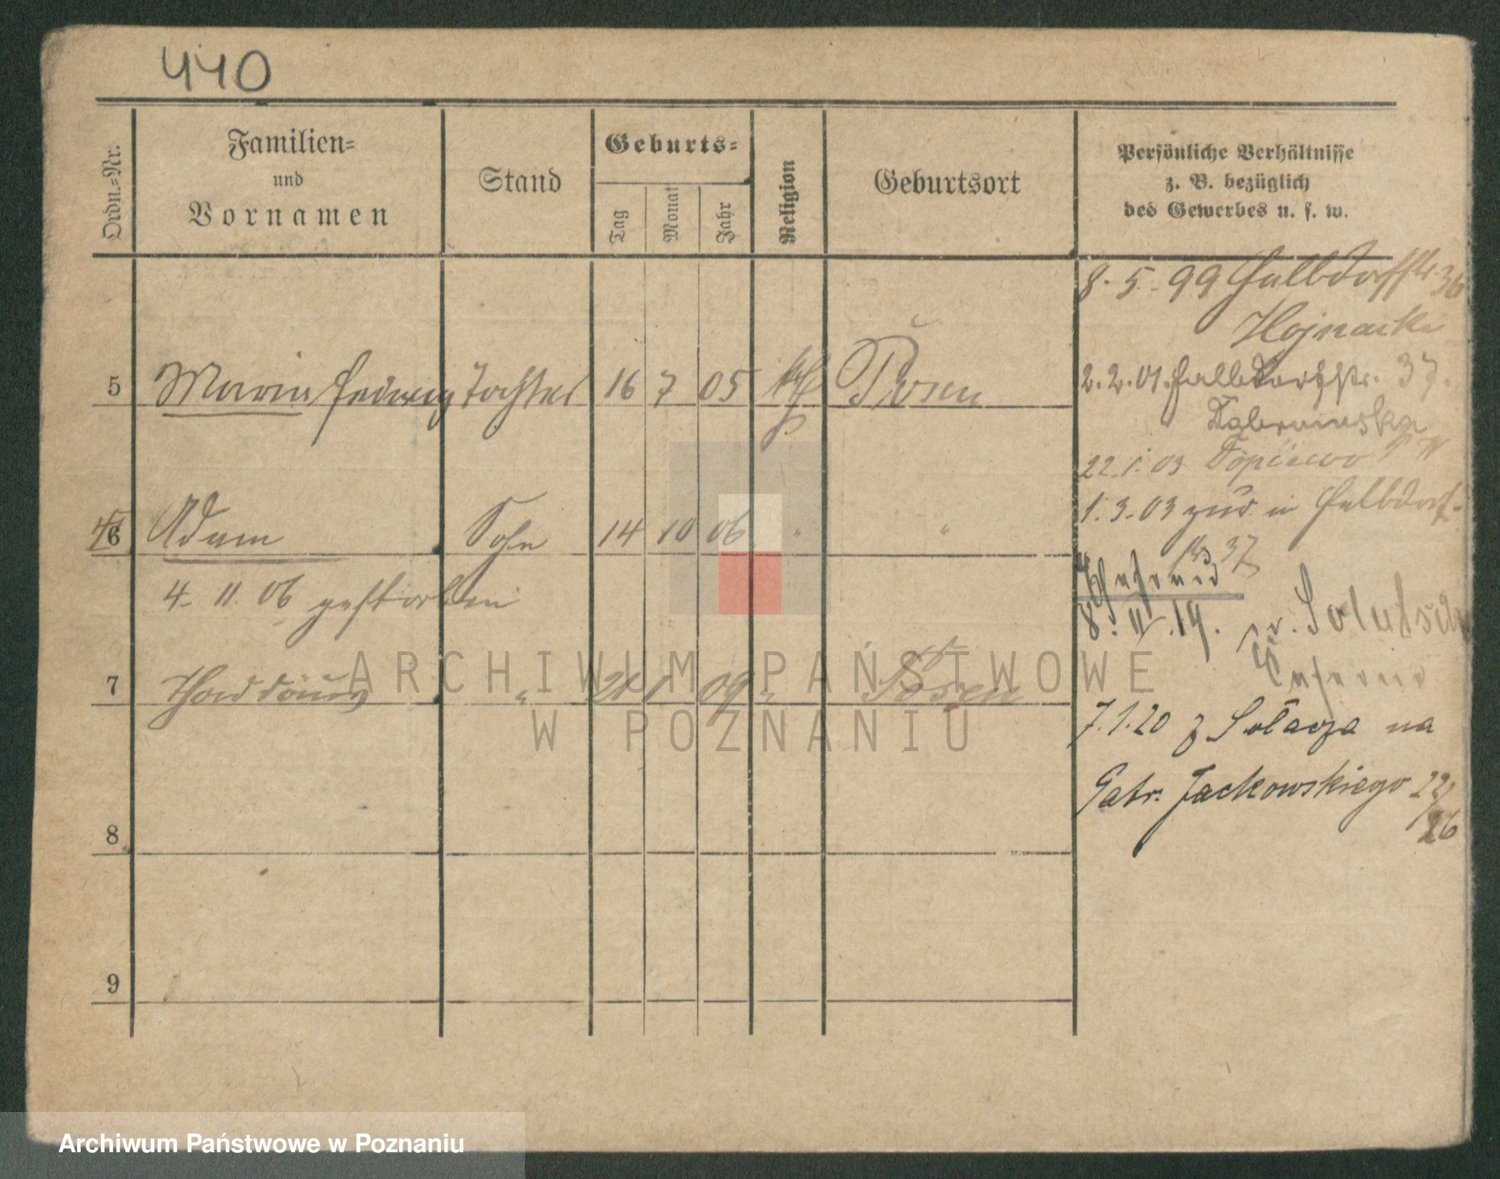 440
Ordn.-Nr.
Familien-
und
Vornamen
Stand
Geburts-
Tag
Monat
Jahr
Religion
Geburtsort
Persönliche Verhältnisse
z. B. bezüglich
des Gewerbes u. s. w.
8. 5. 99 Halbdorfstr. 36
Hojnacki
5 Maria Hedwig Tochter 16 7 05 kth Posen
2. 2. 01. Halbdorfstr. 37.
22. 1. 03
1. 3. 03 zur. in Halbdorf-
str 37
6 Adam Sohn 14 10 06 " "
4. 11. 06 gestorben
8. 11. 19.
7 Thaddäus " 1 09 " Posen
7. 1. 20 z Sołacza na
Gabr. Jackowskiego 22/
26
8
9
ARCHIWUM PAŃSTWOWE
W POZNANIU
Archiwum Państwowe w Poznaniu